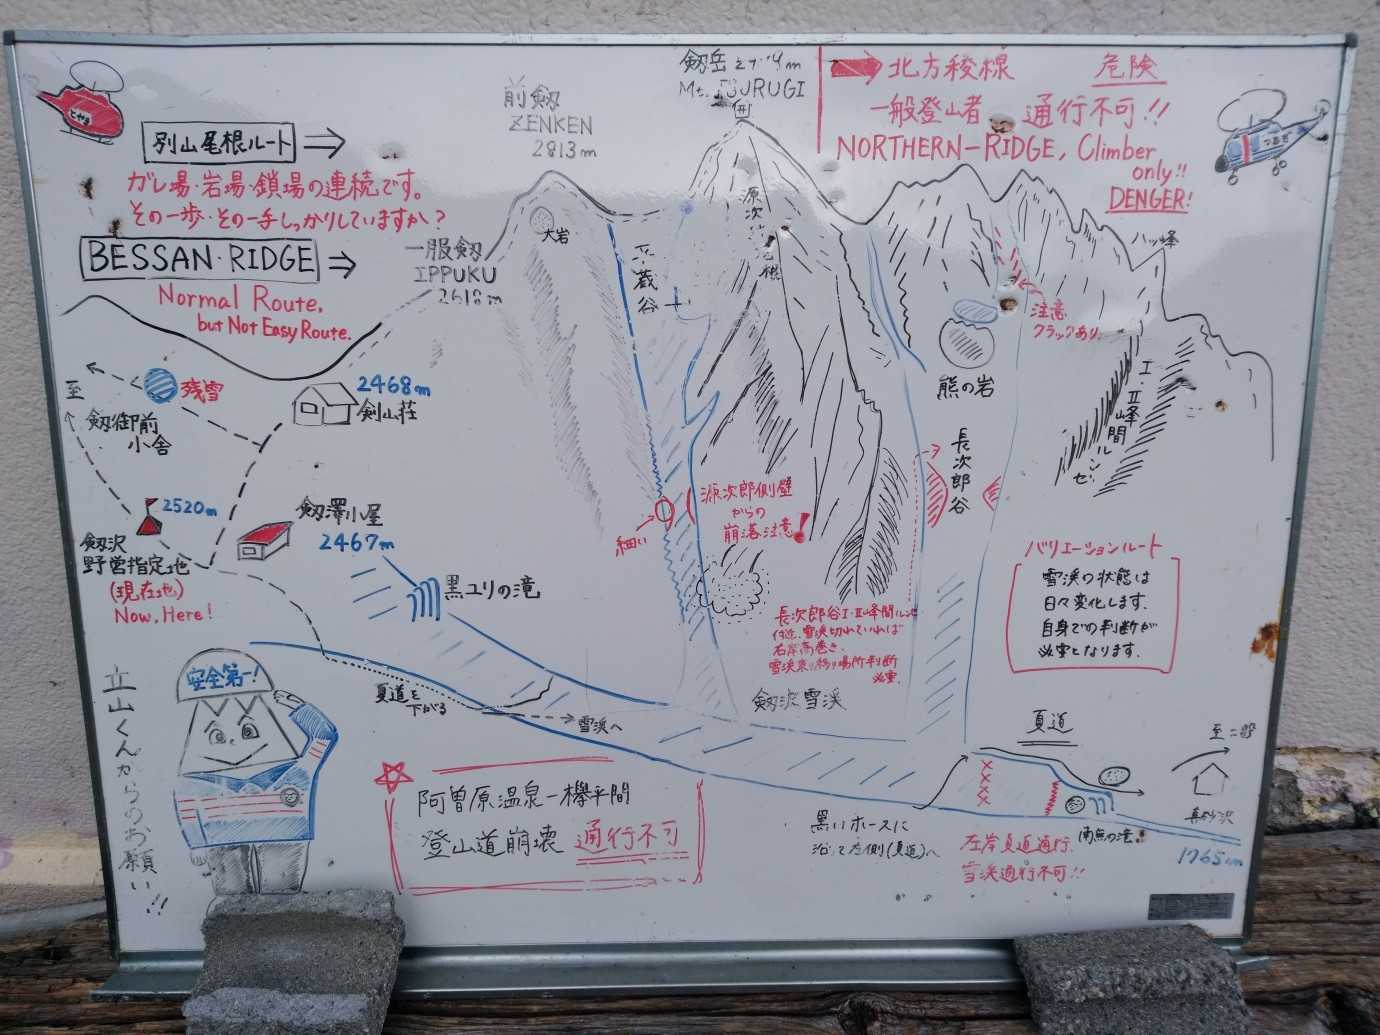 剱岳
Mt. TSURUGI
前剱
ZENKEN
2813m
北方稜線 危険
一般登山者 通行不可!!
NORTHERN-RIDGE, Climber
only!!
DENGER!
とやま
別山尾根ルート
ガレ場・岩場・鎖場の連続です。
その一歩・その一手しっかりしていますか?
BESSAN・RIDGE
Normal Route,
but Not Easy Route.
一服剱
IPPUKU
2618m
大岩
平蔵谷
源次
八ッ峰
注意
クラックあり
熊の岩
I・II峰間ルンゼ
至
残雪
剱御前
小舎
2468m
剣山荘
2520m
剱沢
野営指定地
(現在地)
Now, Here!
剱澤小屋
2467m
黒ユリの滝
細い
源次郎側壁
からの
崩落注意!
長次郎谷
長次郎谷I・II峰間ルンゼ
付近、雪渓切れていれば
右岸高巻き、
雪渓乗り移り場所判断
必要。
バリエーションルート
雪渓の状態は
日々変化します、
自身での判断が
必要となります。
剱沢雪渓
夏道を
下がる
雪渓へ
夏道
至二股
真砂沢
南無の滝
1765m
黒いホースに
沿って左側(夏道)へ
左岸夏道通行、
雪渓通行不可!!
安全第一!
立山くんからのお願い!!
阿曽原温泉ー欅平間
登山道崩壊 通行不可